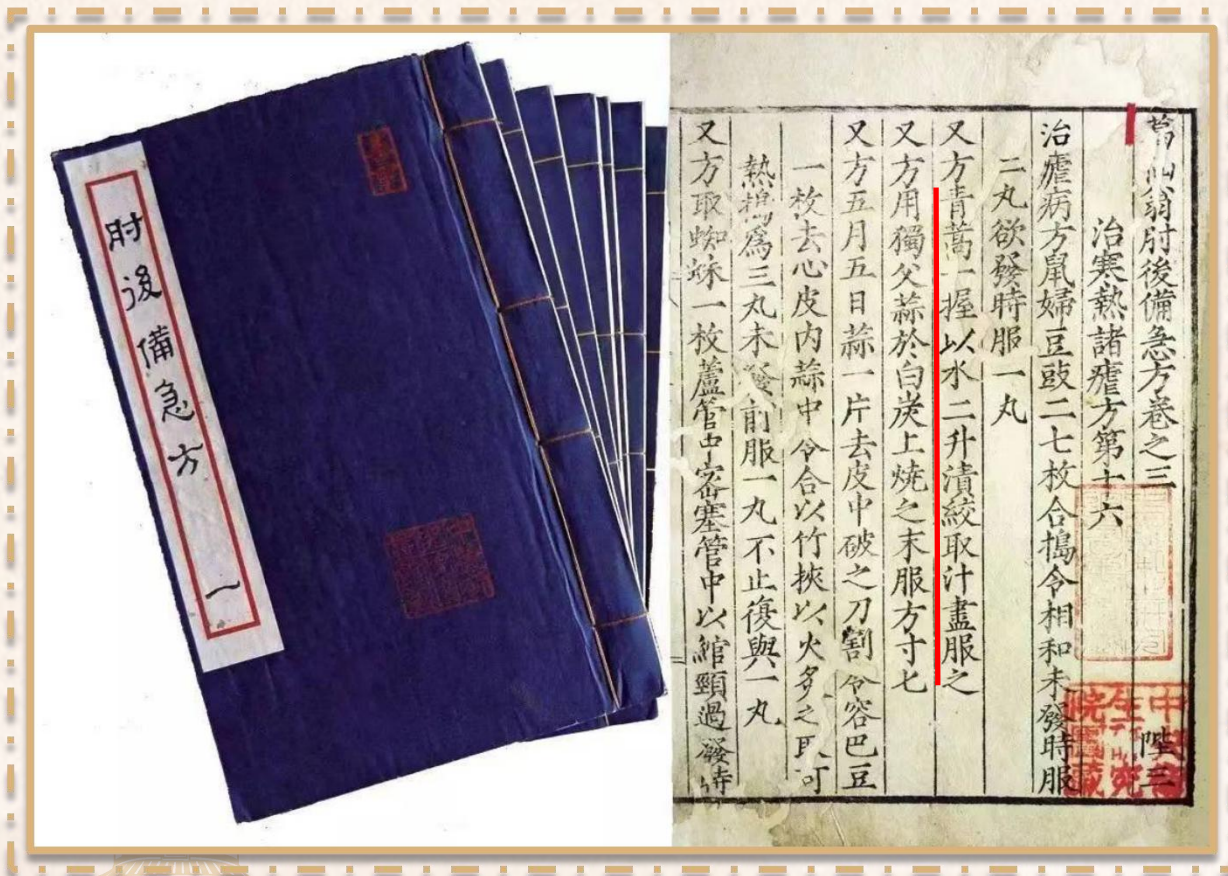 肘後備急方 一
葛仙翁肘後備急方卷之三 陛三
治寒熱諸瘧方第十六
治瘧病方鼠婦豆豉二七枚合搗令相和未發時服
二丸欲發時服一丸
又方青蒿一握以水二升漬絞取汁盡服之
又方用獨父蒜於白炭上燒之末服方寸匕
又方五月五日蒜一片去皮中破之刀割令容巴豆
一枚去心皮内蒜中令合以竹挾以火炙之取可
熱搗爲三丸未發前服一丸不止復與一丸
又方取蜘蛛一枚蘆管中密塞管中以綰頸過發時